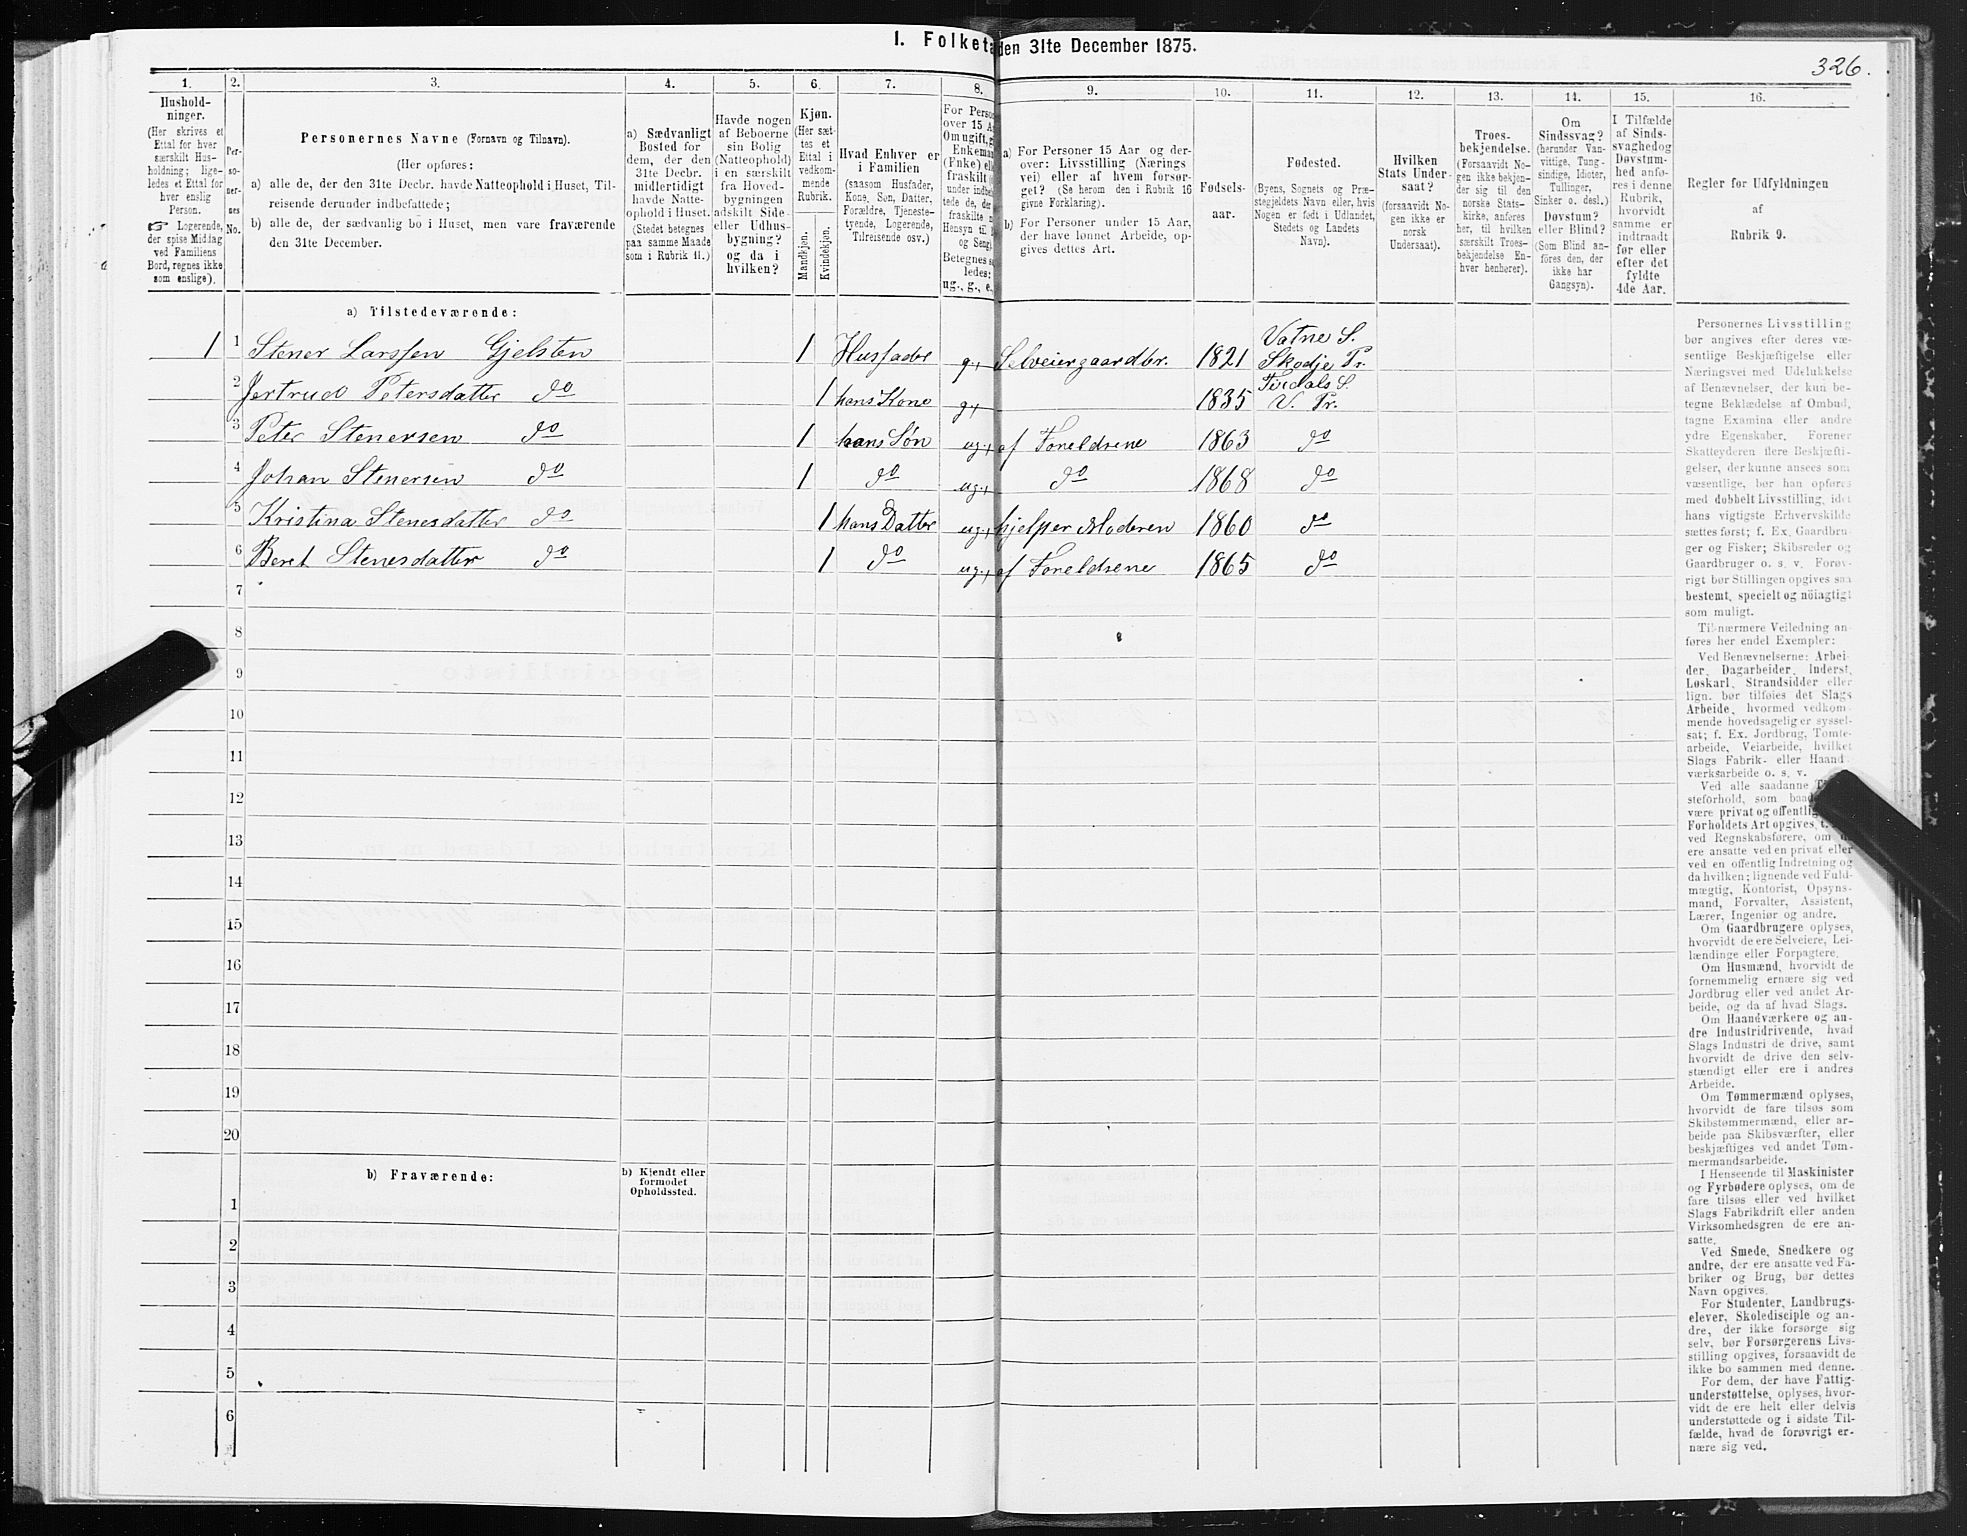 I. Folketæ den 31te December 1875.
326.
1. 2. 3. 4. 5. 6. 7. 8. 9. 10. 11. 12. 13. 14. 15. 16.
Hushold-
ninger.
(Her skrives et
Ettal for hver
særskilt Hus-
holdning; lige-
ledes et Ettal for
hver enslig
Person.
☞ Logerende,
der spise Middag
ved Familiens
Bord, regnes ikke
som enslige).
Per-
so-
ner-
nes
No.
Personernes Navne (Fornavn og Tilnavn).
(Her opføres:
a) alle de, der den 31te Decbr. havde Natteophold i Huset, Til-
reisende derunder indbefattede;
b) alle de, der sædvanlig bo i Huset, men vare fraværende
den 31te December.
a) Sædvanligt
Bosted for
dem, der den
31te Decbr.
midlertidigt
havde Natte-
ophold i Huset.
(Stedet betegnes
paa samme Maade
som i Rubrik 11.)
Havde nogen
af Beboerne
sin Bolig
(Natteophold)
i en særskilt
fra Hoved-
bygningen
adskilt Side-
eller Udhus-
bygning?
og da i
hvilken?
Kjøn.
(Her sæt-
tes et
Ettal i
vedkom-
mende
Rubrik.
Mandkjøn.
Kvindekjøn.
Hvad Enhver er
i Familien
(saasom Husfader,
Kone, Søn, Datter,
Forældre, Tjeneste-
tyende, Logerende,
Tilreisende osv.)
For Perso
over 15 A
Om ugift, g
Enkeman
(Fnke) ell
fraskilt (
under indbe
tede de, de
fraskilte
Hensyn til
og Seng).
Betegnes s
ledes:
ug., g., e.,
a) For Personer 15 Aar og der-
over: Livsstilling (Nærings
vei) eller af hvem forsør-
get? (Se herom den i Rubrik 16
givne Forklaring).
b) For Personer under 15 Aar,
der have lønnet Arbeide, op-
gives dettes Art.
Fødsels-
aar.
Fødested.
(Byens, Sognets og Præ-
stegjeldets Navn eller, hvis
Nogen er født i Udlandet,
Stedets og Landets
Navn).
Hvilken
Stats Under-
saat?
(forsaavidt No-
gen ikke er
norsk
Undersaat).
Troes-
bekjendelse.
(Forsaavidt No-
gen ikke bekjen-
der sig til den
norske Stats-
kirke, anføres
her, til hvilken
særskilt Troes-
bekjendelse En-
hver henhører).
Om
Sindssvag?
(herunder Van-
vittige, Tung-
sindige, Idioter,
Tullinger,
Sinker o. desl.)
Døvstum?
eller Blind?
(Som Blind an-
føres den, der
ikke har
Gangsyn).
I Tilfælde
af Sinds-
svaghed og
Døvstum-
hed anfø-
res i denne
Rubrik,
hvorvidt
samme er
indtraadt
før eller
efter det
fyldte
4de Aar.
Regler for Udfyldningen
af
Rubrik 9.
a) Tilstedeværende:
1 1 Stener Larssen Gjelsten 1 Husfader g., Selveiergaardbr. 1821 Vatne S. Skodje Pr.
2 Jertrud Petersdatter do 1 hans Kone g., 1835 Tirdals S. V. Pr.
3 Peter Stenersen do 1 hans Søn ug., af Foreldrene 1863 do
4 Johan Stenersen do 1 do ug., do 1868 do
5 Kristina Stenesdatter do 1 hans Datter ug., hjelper Moderen 1860 do
6 Beret Stenesdatter do 1 do ug., af Foreldrene 1865 do
7
8
9
10
11
12
13
14
15
16
17
18
19
20
b) Fraværende:
b) Kjendt eller
formodet
Opholdssted.
1
2
3
4
5
6
Personernes Livsstilling
bør angives efter deres væ-
sentlige Beskjæftigelse eller
Næringsvei med Udelukkelse
af Benævnelser, der kun be-
tegne Beklædelse af Ombud,
tagne Examina eller andre
ydre Egenskaber. Forener
Skatteyderen flere Beskjæfti-
gelser, der kunne ansees som
væsentlige, bør han opføres
med dobbelt Livsstilling, idet
hans vigtigste Erhvervskilde
sættes først; f. Ex. Gaardbru-
ger og Fisker; Skibsreder og
Gaardbruger o. s. v. Forøv-
rigt bør Stillingen opgives saa
bestemt, specielt og nöiagtigt
som muligt.
Til nærmere Veiledning an-
føres her endel Exempler:
Ved Benævnelserne: Arbei-
der, Dagarbeider, Inderst,
Løskarl, Strandsidder eller
lign. bør tilføies det Slags
Arbeide, hvormed vedkom-
mende hovedsagelig er syssel-
sat; f. Ex. Jordbrug, Tomte-
arbeide, Veiarbeide, hvilket
Slags Fabrik- eller Haand-
værksarbeide o. s. v.
Ved alle saadanne
steforhold, som baa
være privat og offentlig
Forholdets Art opgives, t.
ved Regnskabsførere, om
ere ansatte ved en privat eller
ved en offentlig Indretning og
da hvilken; lignende ved Fuld-
mægtig, Kontorist, Opsyns-
mand, Forvalter, Assistent,
Lærer, Ingeniør og andre.
Om Gaardbrugere oplyses,
hvorvidt de ere Selveiere, Lei-
lændinge eller Forpagtere.
Om Husmænd, hvorvidt de
fornemmelig ernære sig ved
Jordbrug eller ved andet Ar-
beide, og da af hvad Slags.
Om Haandværkere og an-
dre Industridrivende, hvad
Slags Industri de drive, samt
hvorvidt de drive den selv-
stændigt eller ere i andres
Arbeide.
Om Tømmermænd oplyses,
hvorvidt de fare tilsøs som
Skibstømmermænd, eller ar-
beide paa Skibsværfter, eller
beskjæftiges ved andet Tøm-
mermandsarbeide.
I Henseende til Maskinister
og Fyrbødere oplyses, om de
fare tilsøs eller ved hvilket
Slags Fabrikdrift eller anden
Virksomhedsgren de ere an-
satte.
Ved Smede, Snedkere og
andre, der ere ansatte ved Fa-
briker og Brug, bør dettes
Navn opgives.
For Studenter, Landbrugs-
elever, Skoledisciple og an-
dre, der ikke forsørge sig
selv, bør Forsørgerens Livs-
stilling opgives, forsaavidt de
ikke bo sammen med denne.
For dem, der have Fattig-
understøttelse, oplyses, hvor-
vidt de ere helt eller delvis
understøttede og i sidste Til-
fælde, hvad de forøvrigt er-
nære sig ved.